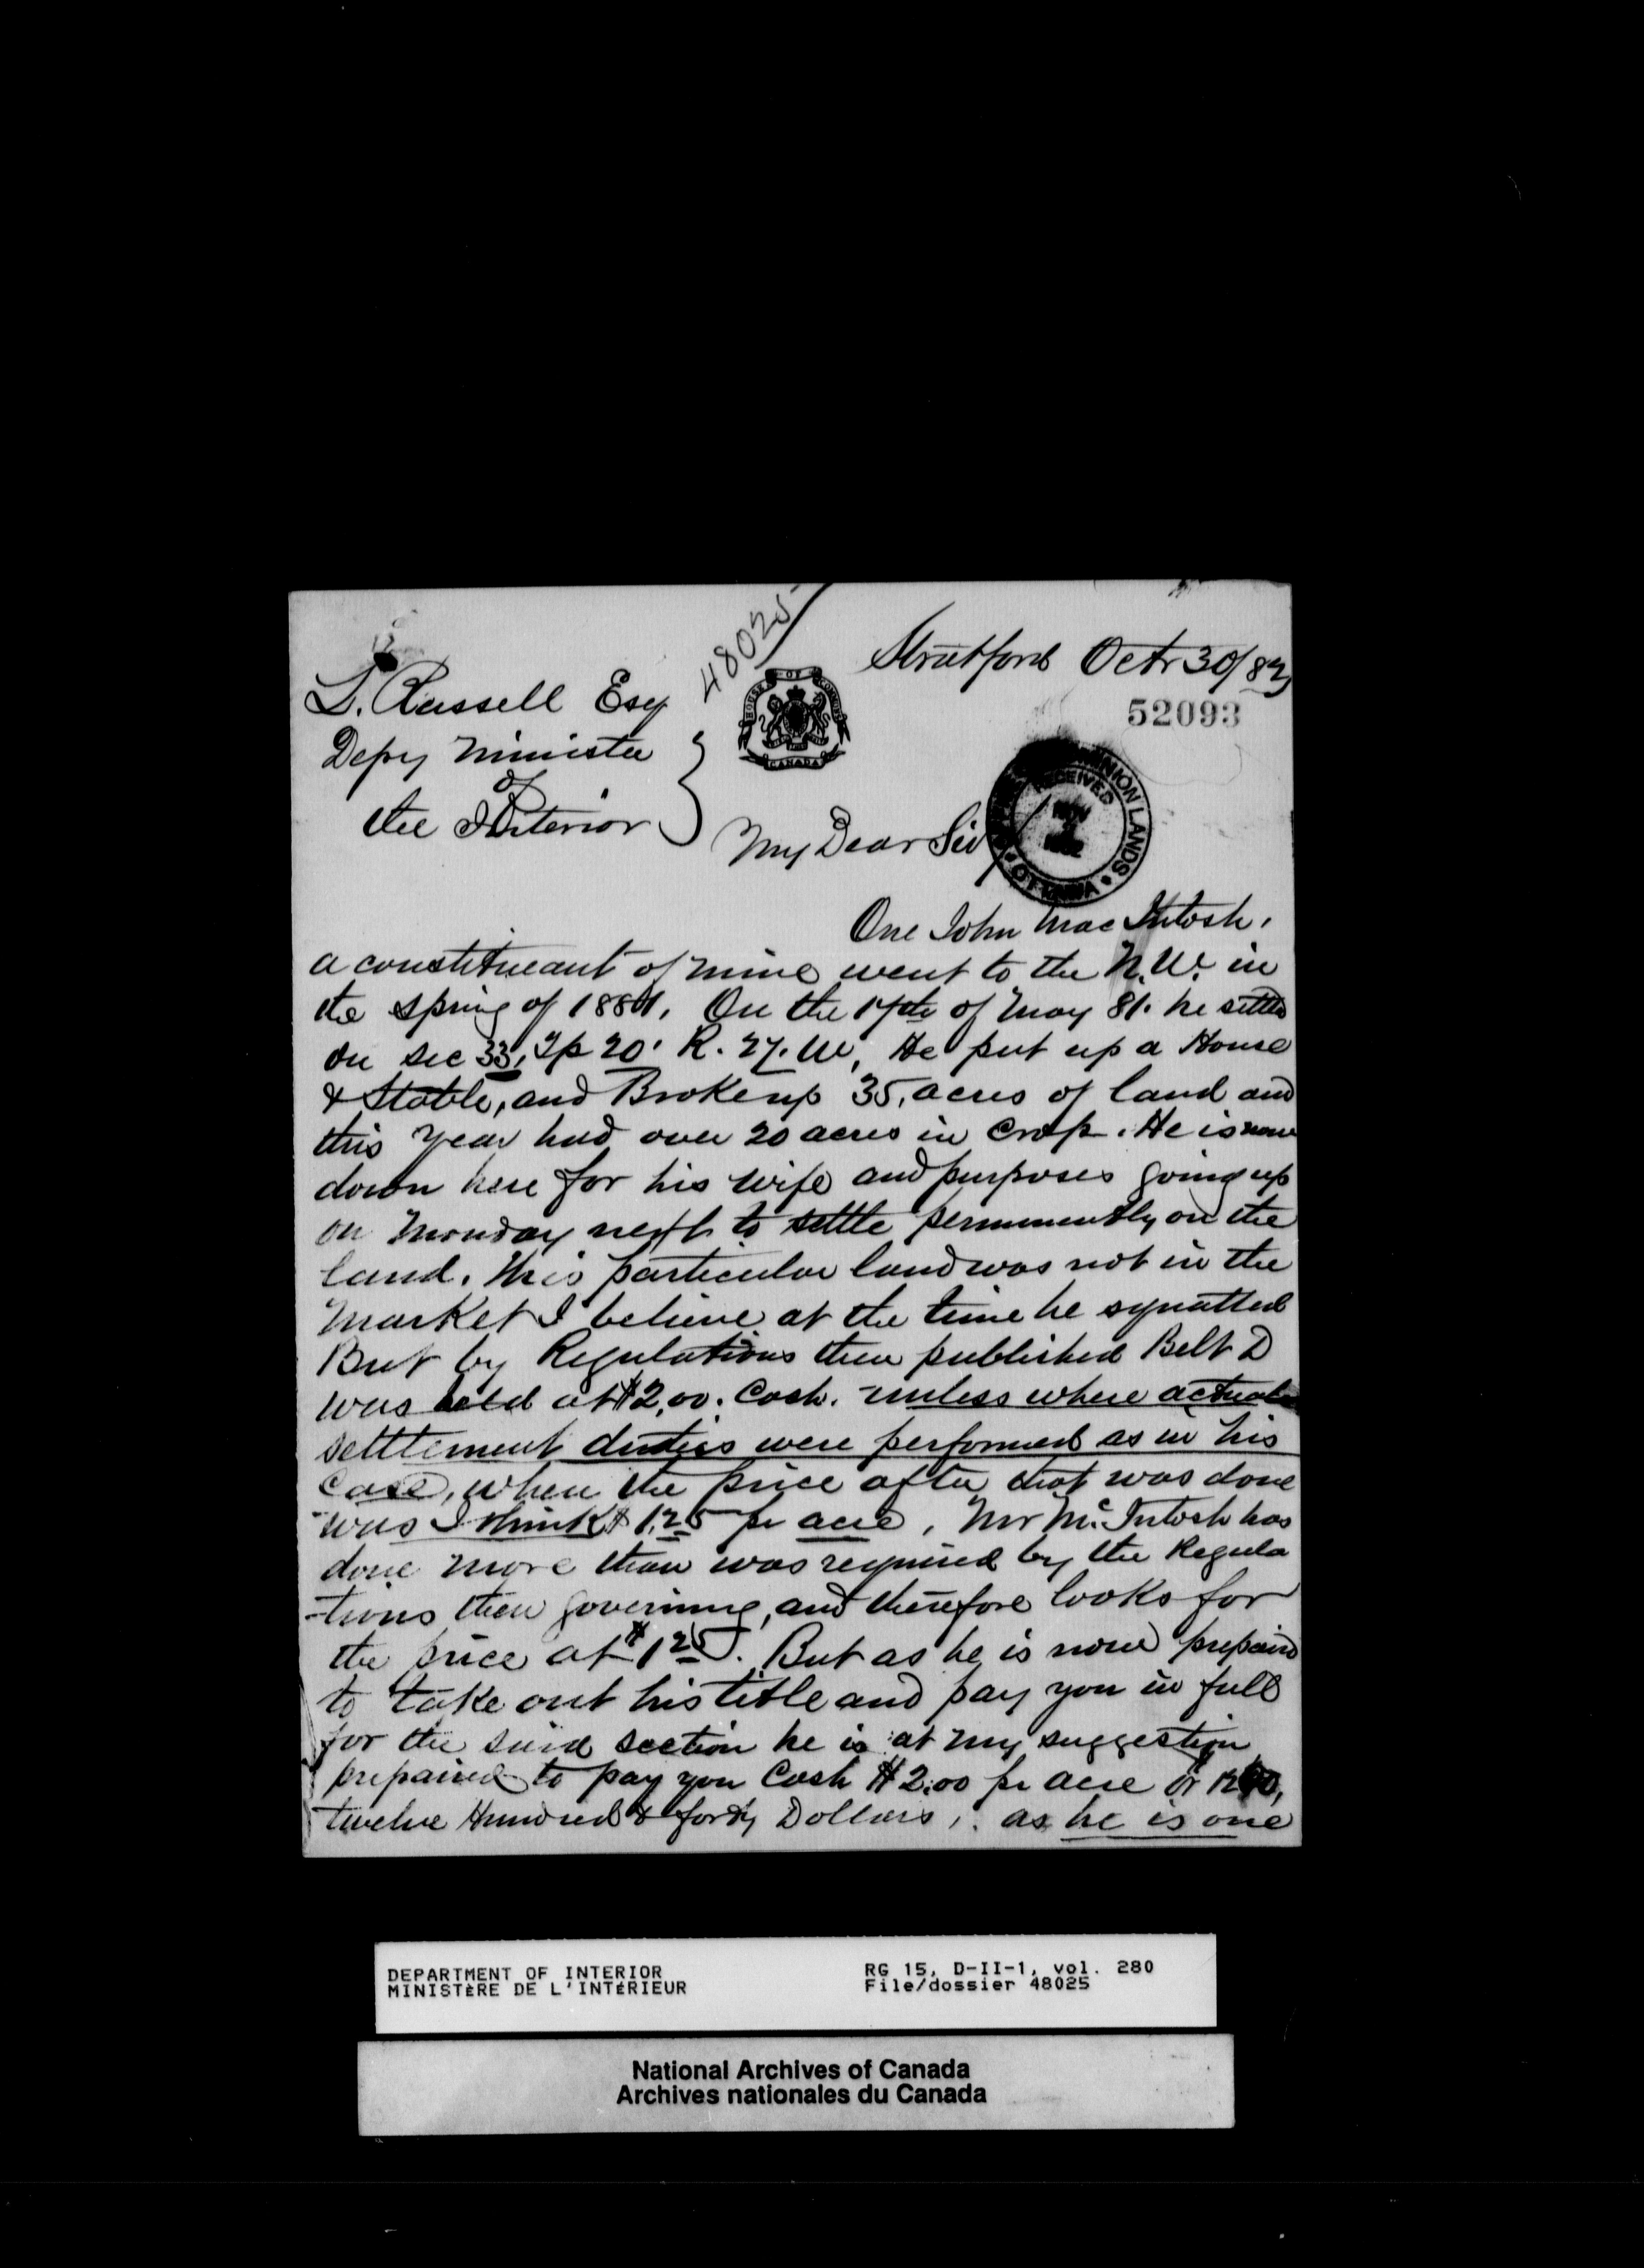 48025
Stratford Octr 30/82
52093
L. Russell Esq
Depy Minister
of
the Interior
HOUSE OF COMMONS
CANADA
DOMINION LANDS
RECEIVED
NOV
1882
OTTAWA
My Dear Sir
One John MacIntosh.
a constitueant of mine went to the N.W. in
the spring of 1881. On the 17th of May 81. he settled
on sec 33, Tp 20. R. 27. W, He put up a House
& Stable, and Broke up 35, acres of land and
this year had over 20 acres in Crop. He is now
down here for his wife and purposes going up
on Monday next to settle permanently on the
land. This particular land was not in the
Market I believe at the time he squatted
But by Regulations then published Belt D
was held at $2,00. Cash. unless where actual
setttlement duties were performed as in his
Case, when the price after that was done
was I think $1,25 pr acre, Mr McIntosh has
done more than was required by the Regula
-tions then governing, and therefore looks for
the price at $1 25. But as he is now prepaird
to take out his title and pay you in full
for the said section he is at my suggestion
prepaired to pay you Cash $2.00 pr acre or 1240,
twelve Hundred & forty Dollars, . as he is one
DEPARTMENT OF INTERIOR
MINISTÈRE DE L'INTÉRIEUR
RG 15, D-II-1, vol. 280
File/dossier 48025
National Archives of Canada
Archives nationales du Canada